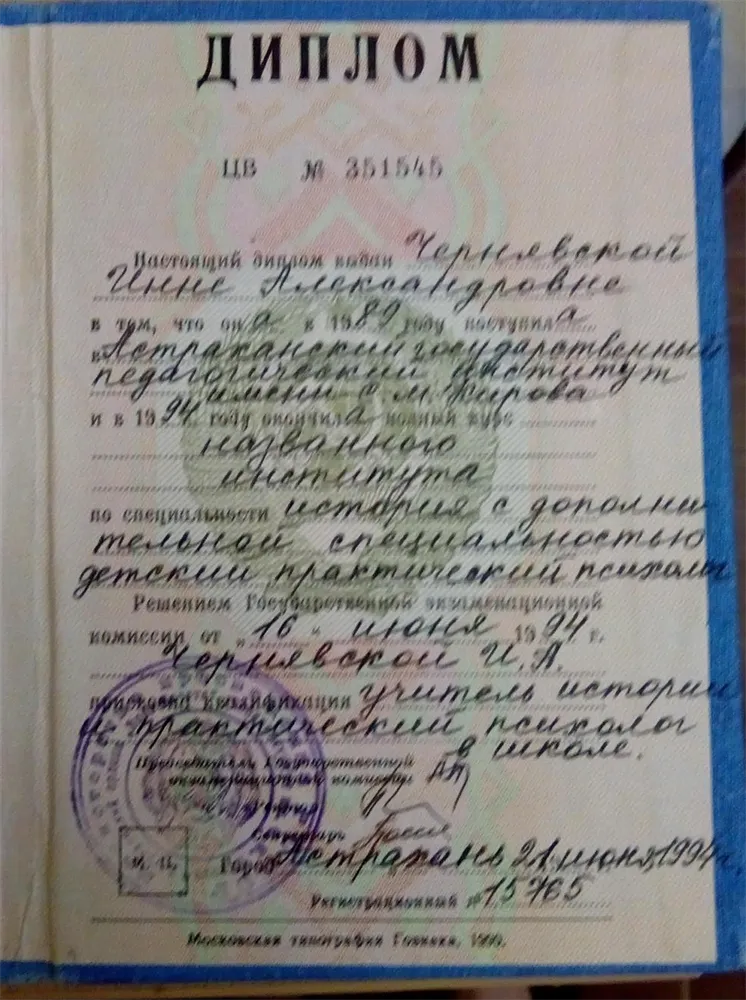 ДИПЛОМ
ЦВ № 351545
Настоящий диплом выдан Чернявской
Инне Александровне
в том, что она в 1989 году поступила
в Астраханский государственный
педагогический институт
имени С. М. Кирова
и в 1994 году окончила полный курс
названного
института
по специальности история с дополни
тельной специальностью
детский практический психолог
Решением Государственной экзаменационной
комиссии от „16" июня 1994 г.
Чернявской И. А.
присвоена квалификация учитель истории
и практический психолог
в школе.
Председатель Государственной
экзаменационной комиссии
Ректор
Секретарь
М. П. Город Астрахань 21 июня 1994 г.
Регистрационный № 15765
Московская типография Гознака, 1990.